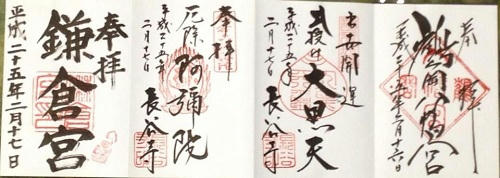 奉拝
鶴岡八幡宮
平成二十五年二月十六日
出世開運
出世授け大黒天
平成二十五年
二月十七日
長谷寺
奉拝
厄除阿彌陀
平成二十五年
二月十七日
長谷寺
奉拝
鎌倉宮
平成二十五年二月十七日